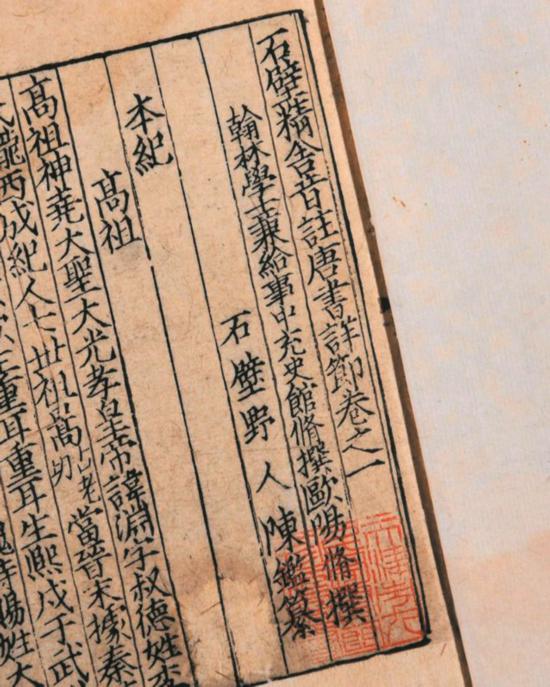 石壁精舍音註唐書詳節卷之一
翰林學士兼給事中充史館脩撰歐陽脩撰
石壁野人陳鑑纂
本紀
高祖
高祖神堯大聖大光孝皇帝諱淵字叔德姓李
氏隴西成紀人七世祖暠古老當晉末據秦
重耳重耳生熙戍于武
賜姓大